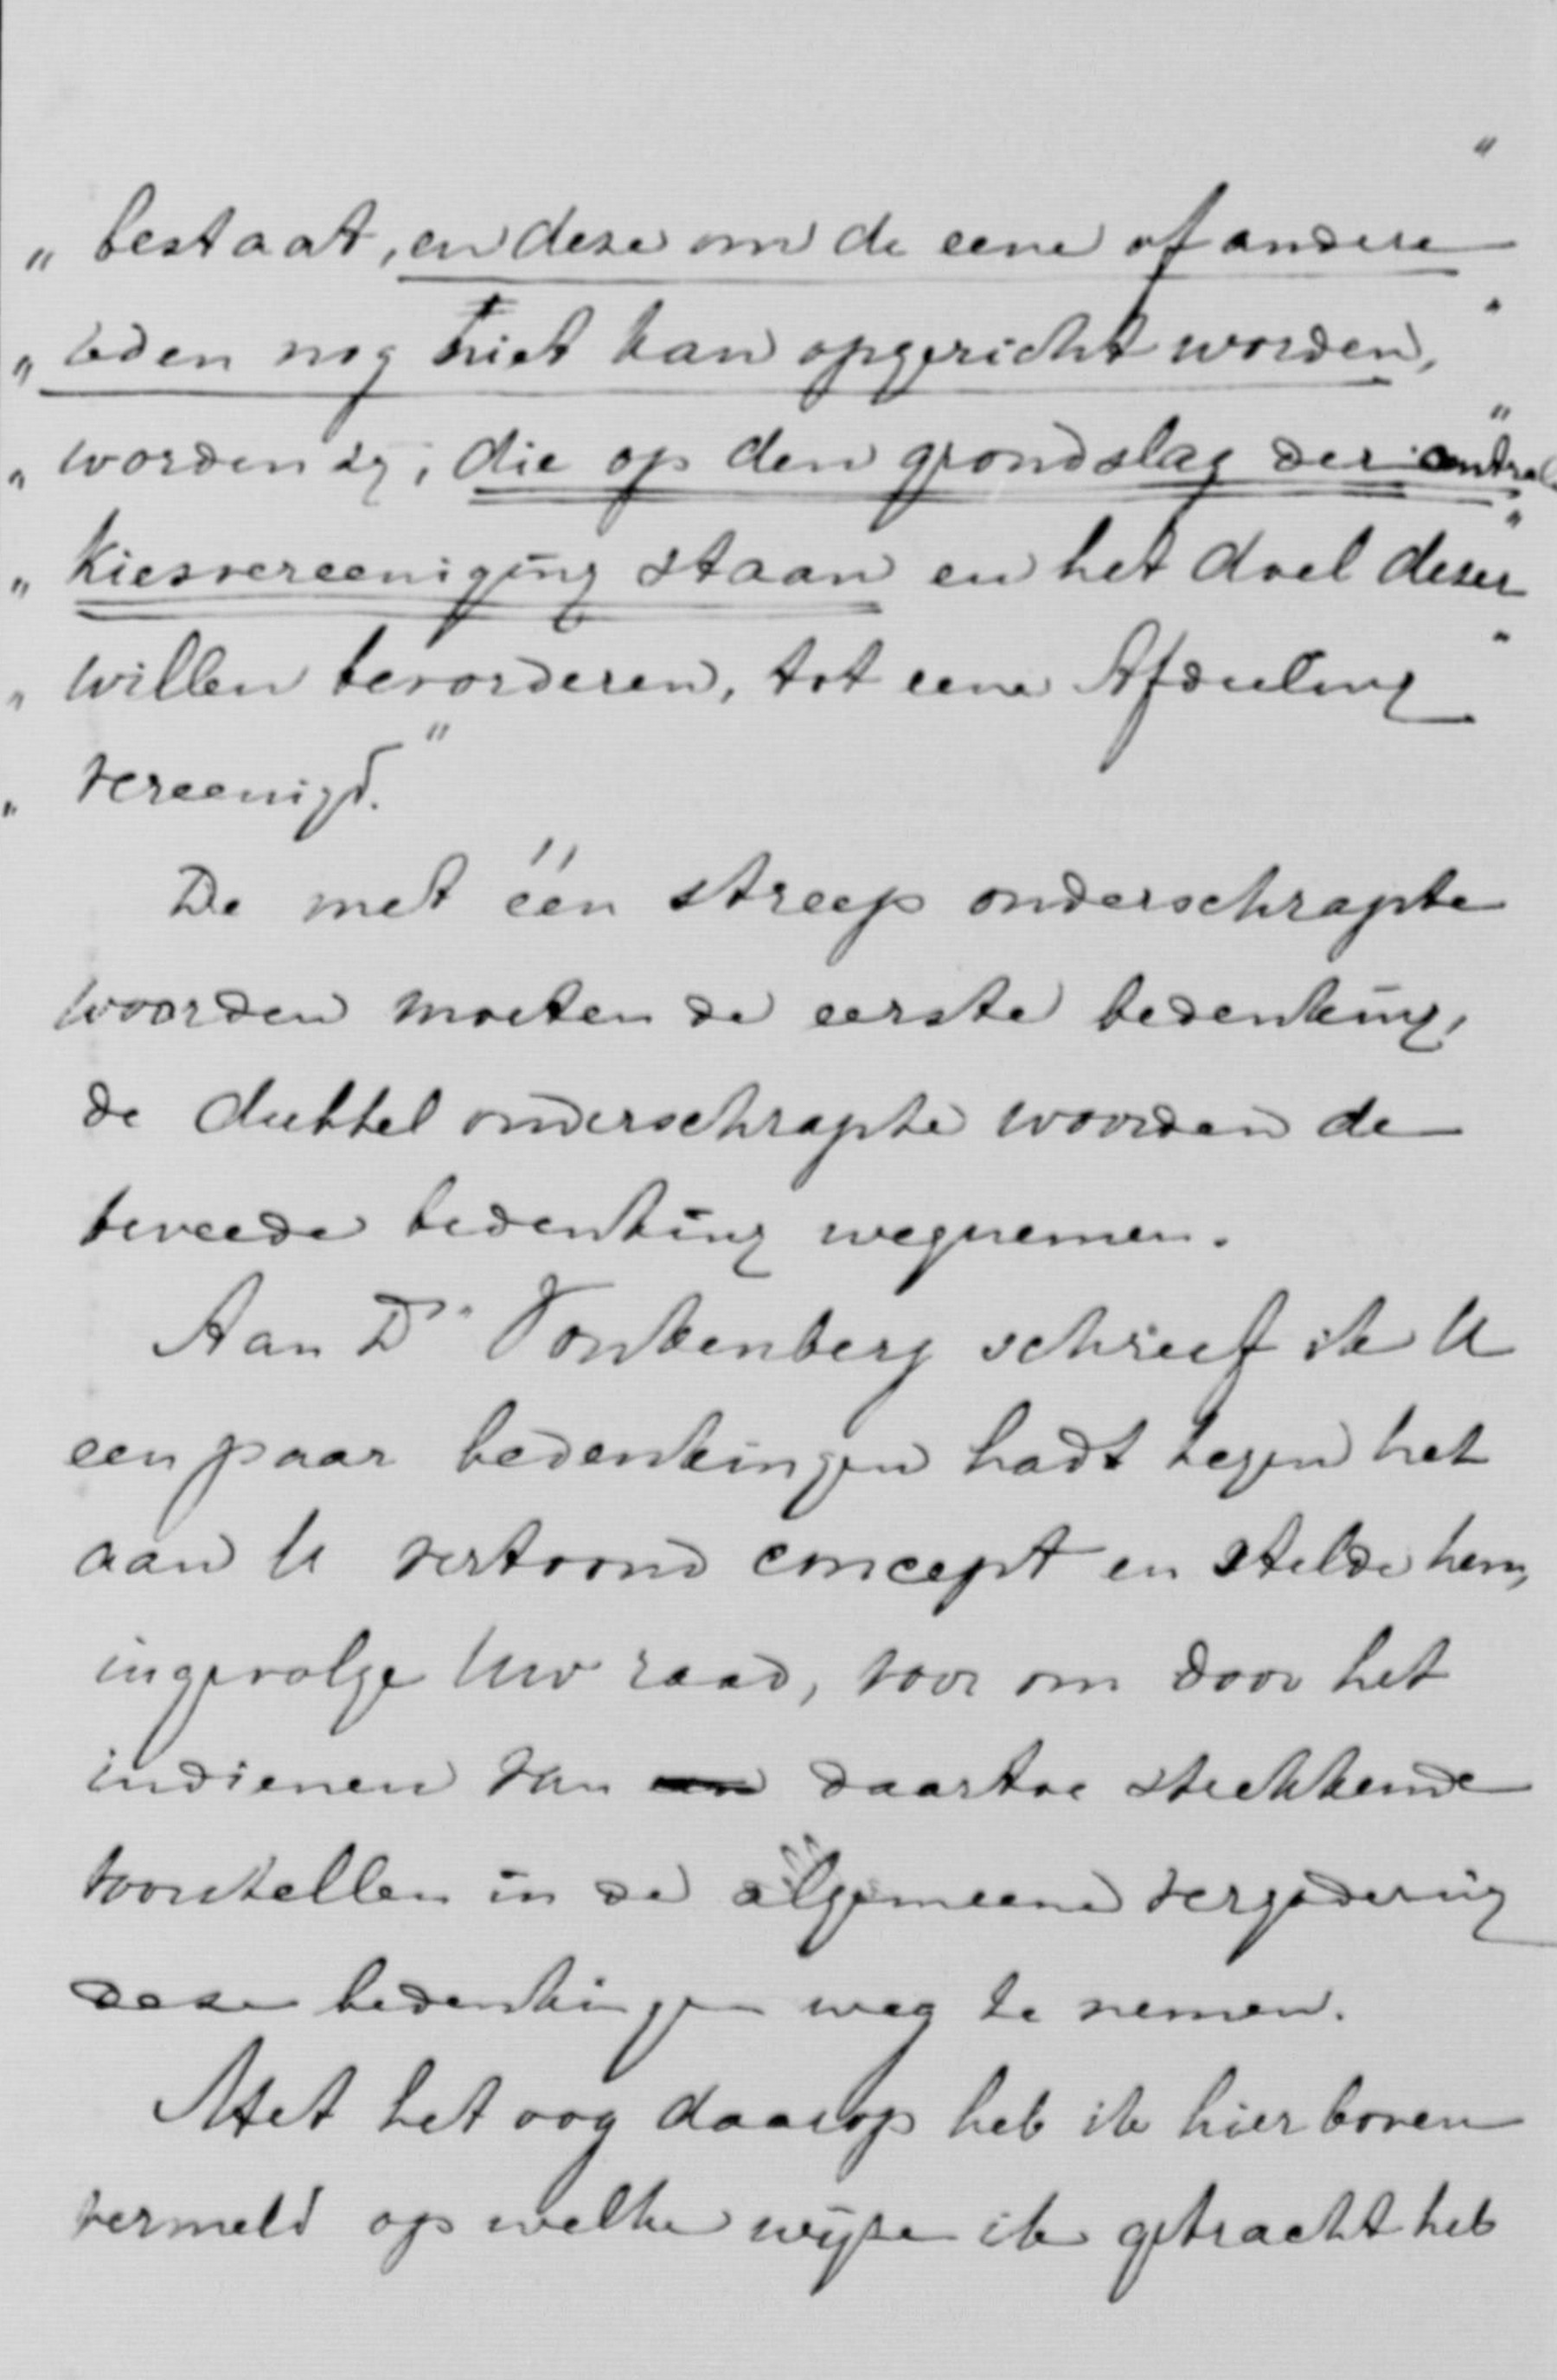 „ bestaat, en deze om de eene of andere "
„ reden nog niet kan opgericht worden, "
„ worden zij, die op den grondslag der centrale "
„ Kiesvereeniging staan en het doel dezer "
„ willen bevorderen, tot eene Afdeeling "
„ vereenigd."
De met één streep onderschrapte
woorden moeten de eerste bedenking,
de dubbel onderschrapte woorden de
tweede bedenking wegnemen.
Aan Dr. Vonkenberg schreef ik U
een paar bedenkingen hadt tegen het
aan U vertoond concept en stelde hem,
ingevolge Uw raad, voor om door het
indienen van daartoe strekkende
voorstellen in de algemeene vergadering
deze bedenkingen weg te nemen.
Met het oog daarop heb ik hierboven
vermeld op welke wijze ik getracht heb